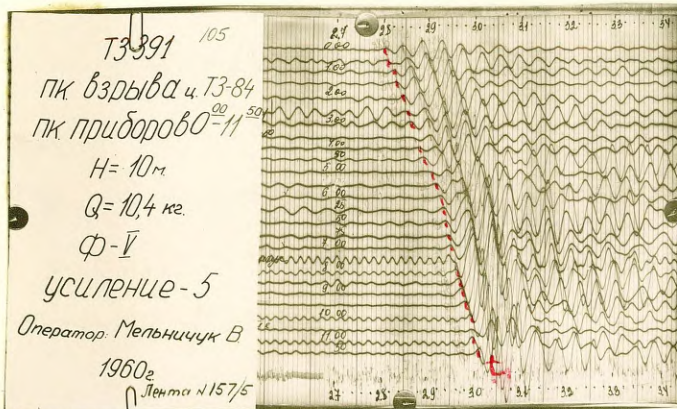 105
ТЗ 391
ПК взрыва и ТЗ-84
ПК приборов 0⁰⁰-11⁵⁰
H = 10 м.
Q = 10,4 кг.
Ф-V
усиление-5
Оператор: Мельничук В.
1960г.
Лента N157/5
27 28 29 30 31 32 33 34
0 00
1 00
2 00
3 00
4 00
50
5 00
6 00
25
50
75
7 00
8 00
9 00
10 00
11 00
50
27 28 29 30 31 32 33 34
t